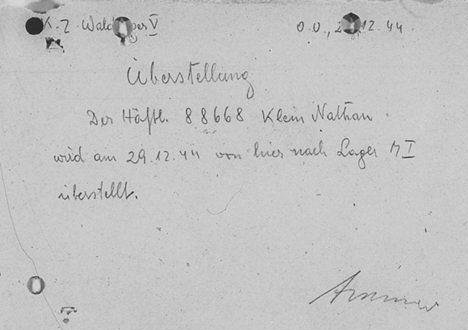 K.Z Waldlager V
O.U., 2 .12.44
Überstellung
Der Häftl. 88668 Klein Nathan
wird am 29.12.44 von hier nach Lager M I
überstellt.